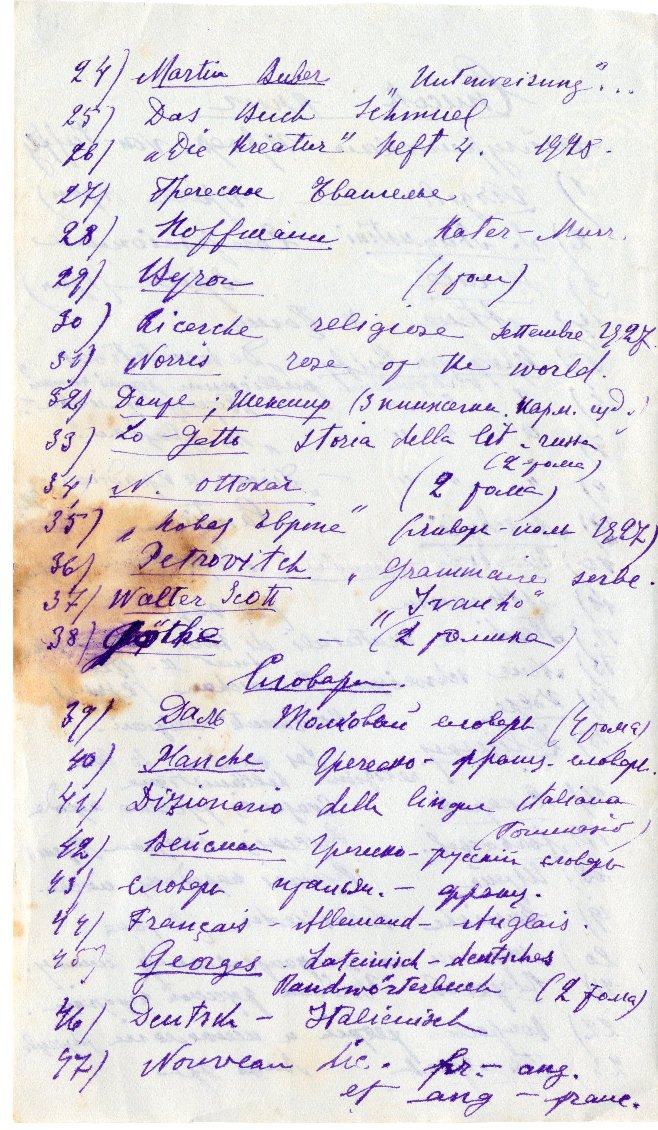 24) Martin Buber "Unterweisung"...
25) Das Buch Schmuel
26) "Die Kreatur" Heft 4. 1928.
27) Греческое Евангелье
28) Hoffmann Kater-Murr.
29) Byron (1 том)
30) Ricerche religiose Settembre 1927.
31) Norris rose of the world.
32) Данте; Шекспир (3 книжечки карм. изд.)
33) Lo-Gatto Storia della let. russa
(2 тома)
34) N. Ottokar (2 тома)
35) "Новая Европа" (Январь-июль 1927)
36) Petrovitch "Grammaire serbe.
37) Walter Scott "Ivanho"
38) Göthe — (2 томика)
Словари.
39) Даль Толковый словарь (4 тома)
40) Hanche Греческо-франц. словарь.
41) Dizionario della lingua italiana
(Tommaseo)
42) Вейсман Греческо-русский словарь
43) Словарь итальян. - франц.
44) Français - Allemand - Anglais.
45) Georges Lateinisch-deutsches
Handwörterbuch (2 тома)
46) Deutsch - Italienisch
47) Nouveau dic. fr. - ang.
et ang - franc.